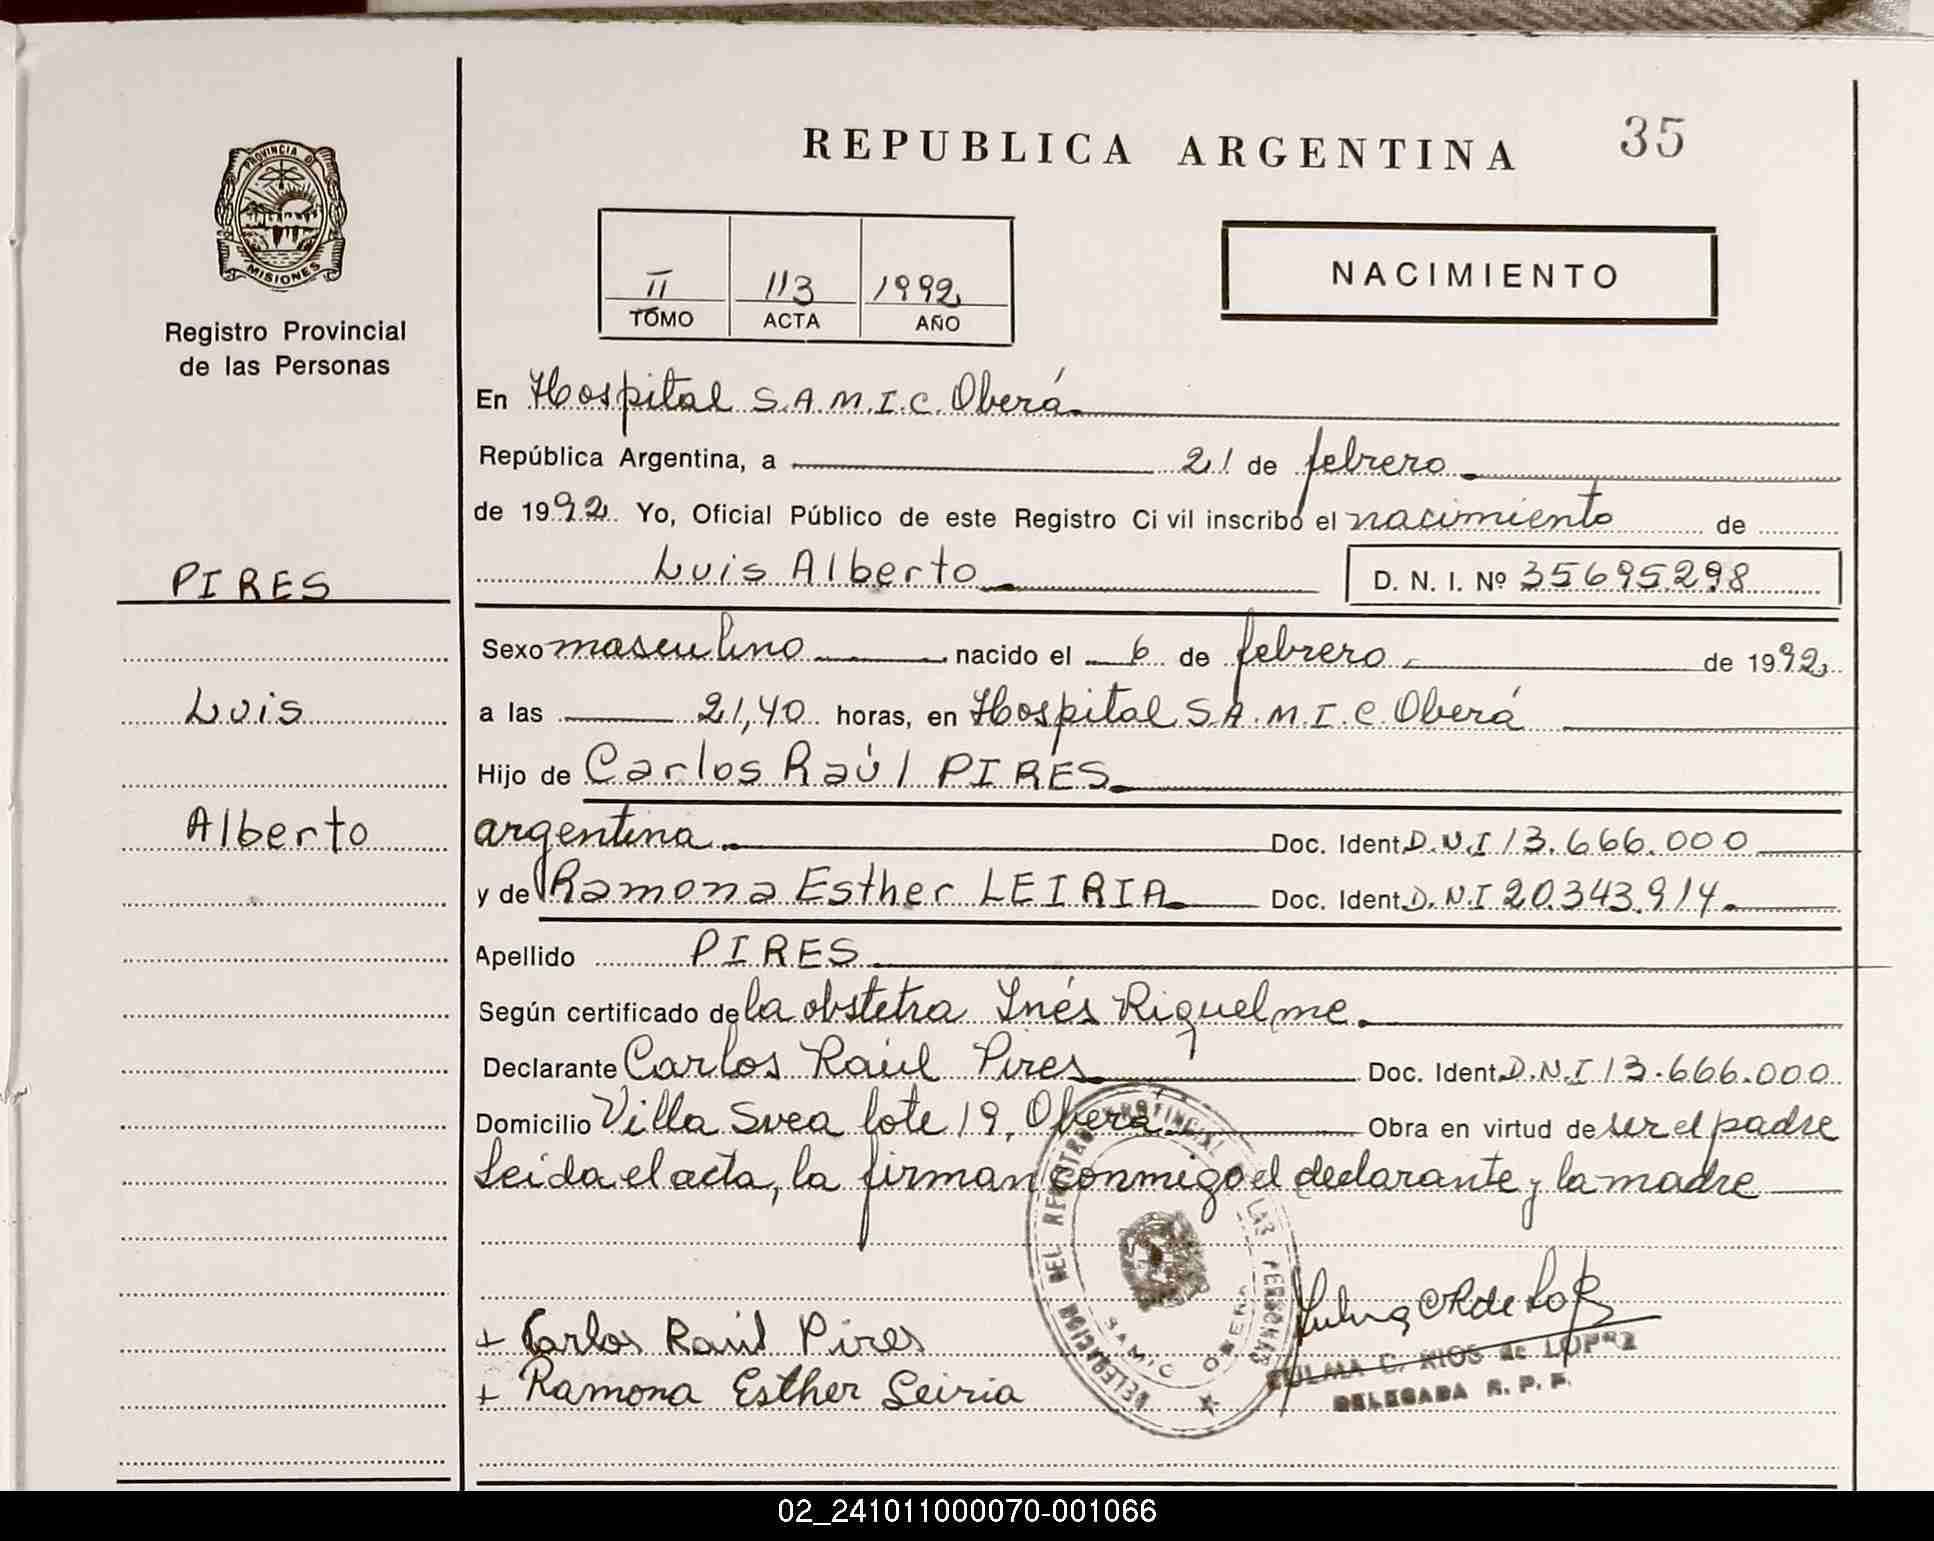 REPUBLICA ARGENTINA
35
PROVINCIA DE
MISIONES
Registro Provincial
de las Personas
II
113
1992
TOMO
ACTA
AÑO
NACIMIENTO
En Hospital S.A.M.I.C. Oberá
República Argentina, a 21 de febrero
de 1992 Yo, Oficial Público de este Registro Ci vil inscribo el nacimiento de
Luis Alberto D. N. I. Nº 35695298
PIRES
Luis
Alberto
Sexo masculino nacido el 6 de febrero de 1992
a las 21,40 horas, en Hospital S.A.M.I.C. Oberá
Hijo de Carlos Raúl PIRES
argentina Doc. Ident D.N.I 13.666.000
y de Ramona Esther LEIRIA Doc. Ident D.N.I 20.343.914
Apellido PIRES
Según certificado de la obstetra Inés Riquelme
Declarante Carlos Raúl Pires Doc. Ident D.N.I 13.666.000
Domicilio Villa Svea lote 19, Oberá Obra en virtud de ser el padre
Leida el acta, la firman conmigo el declarante y la madre
DELEGACION DEL REGISTRO PROVINCIAL LAS PERSONAS
SAMIC OBERA
+ Carlos Raúl Pires
+ Ramona Esther Leiria
ZULMA C. RIOS de LOPEZ
DELEGADA R. P. P.
02_241011000070-001066